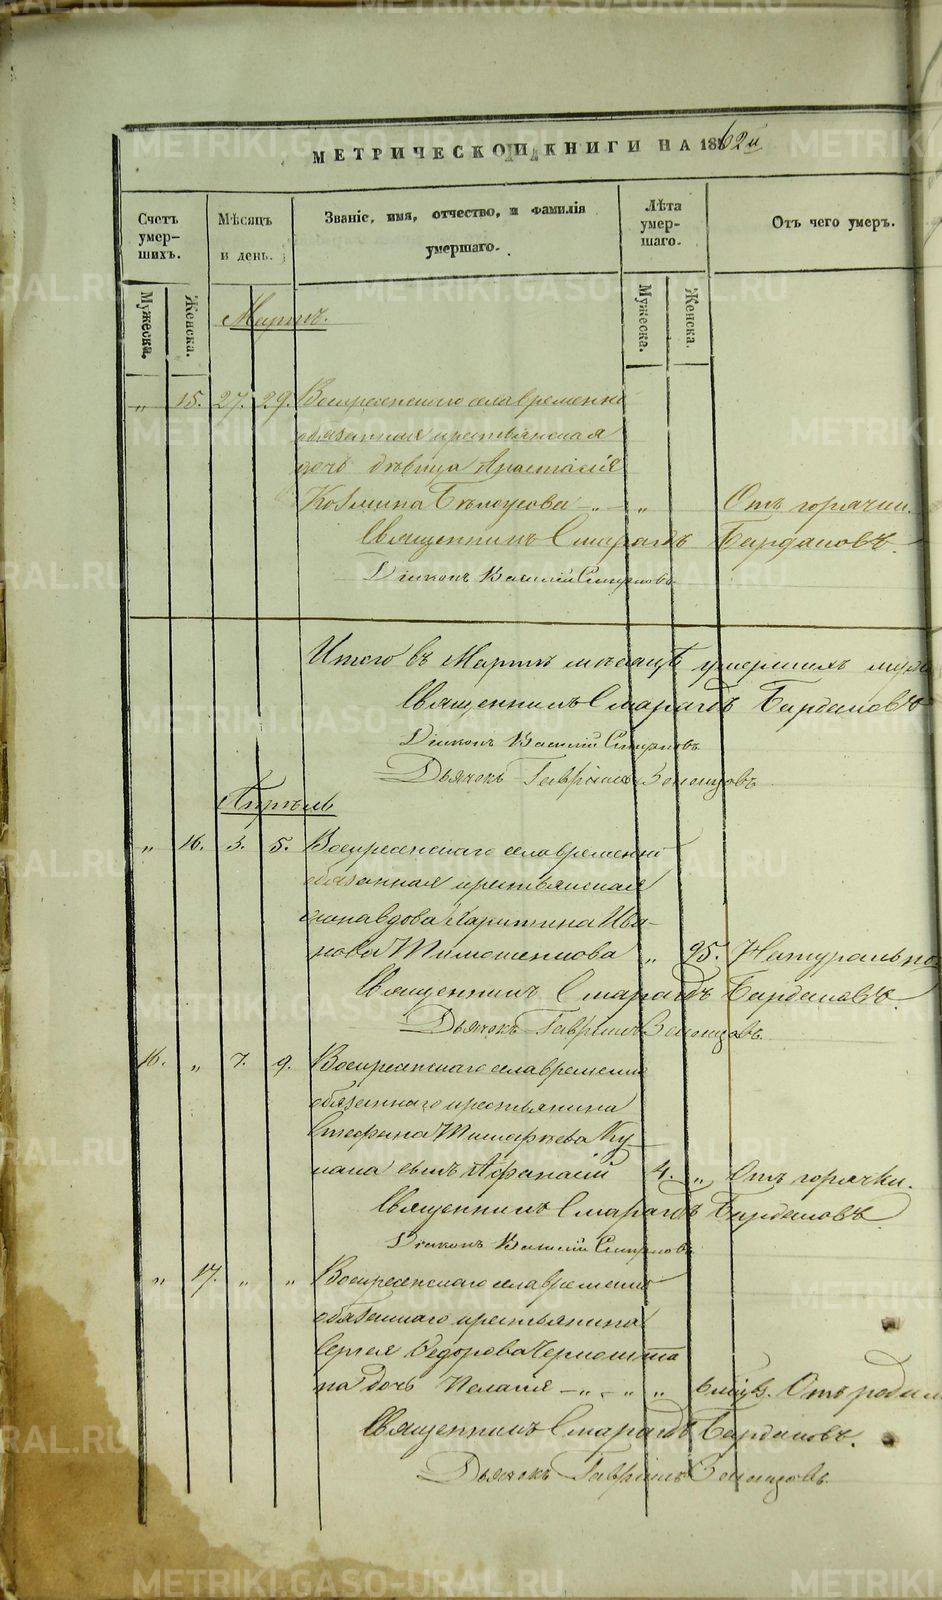 МЕТРИЧЕСКОЙ КНИГИ НА 1862й
Счетъ умер-шихъ.
Мужеска.
Женска.
Мѣсяцъ и день.
Званіе, имя, отчество, и фамилія умершаго.
Лѣта умер-шаго.
Мужеска.
Женска.
Отъ чего умеръ.
Мартъ.
„ 15. 27. 29. Воскресенскаго села временно
обязанная крестьянская
дочь дѣвица Анастасія
Козмина Бѣлоусова - „ - „ Отъ горячки.
Священникъ Смарагдъ Бирдановъ.
Діаконъ Василій Смирновъ
Итого въ Мартѣ мѣсяцѣ умершихъ
Священникъ Смарагдъ Бирдановъ
Діаконъ Василій Смирновъ
Дьячокъ Гавріилъ
Апрѣль
„ 16. 3. 5. Воскресенскаго села временно
обязанная крестьянская
вдова Харитина Ива-
нова Тимошенкова „ 95. Натурально
Священникъ Смарагдъ Бирдановъ.
Дьячокъ Гавріилъ
16. „ 7. 9. Воскресенскаго села временно
обязаннаго крестьянина
Стефана
сынъ Афанасій 4. „ Отъ горячки.
Священникъ Смарагдъ Бирдановъ.
Діаконъ Василій Смирновъ
„ 17. „ „ Воскресенскаго села временно
обязаннаго крестьянина
Сергея Федорова
на дочь Пелагія - „ - „ „ 6 мѣсяц. Отъ родим
Священникъ Смарагдъ Бирдановъ.
Дьячокъ Гавріилъ
METRIKI.GASO-URAL.RU